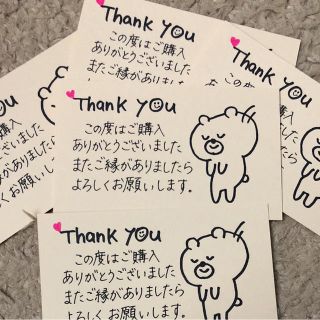 Thank you
この度はご購入
ありがとうございました
またご縁がありました
Thank you
この
ありが
また
よろ
you
購入
ございました
がありましたら
お願いします。
Thank you
この度はご購入
ありがとうございました
またご縁がありましたら
よろしくお願いします。
Thank you
この度はご購入
ありがとうございました
またご縁がありましたら
よろしくお願いします。